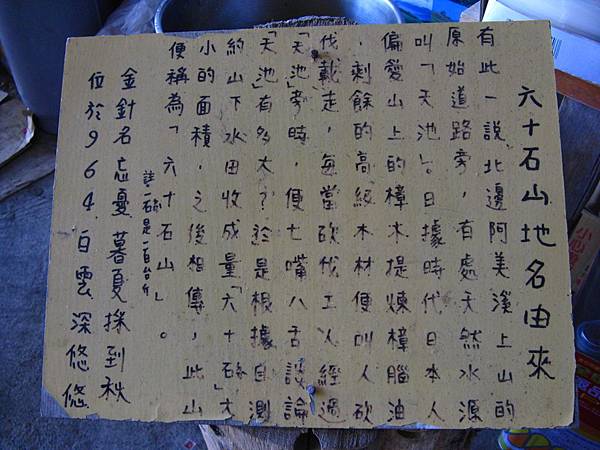 六十石山地名由來
有此一說北邊阿美溪上山的
原始道路旁,有處天然水源
叫「天池」。日據時代日本人
偏愛山上的樟木提煉樟腦油
,剩餘的高級木材便叫人砍
伐載走,每當砍伐工人經過
「天池」旁時,便七嘴八舌談論
「天池」有多大?於是根據目測
約山下水田收成量「六十石」大
小的面積,之後相傳,此山
便稱為「六十石山」。
註:一石是一百台斤
金針名忘憂暮夏採到秋
位於964白雲深悠悠